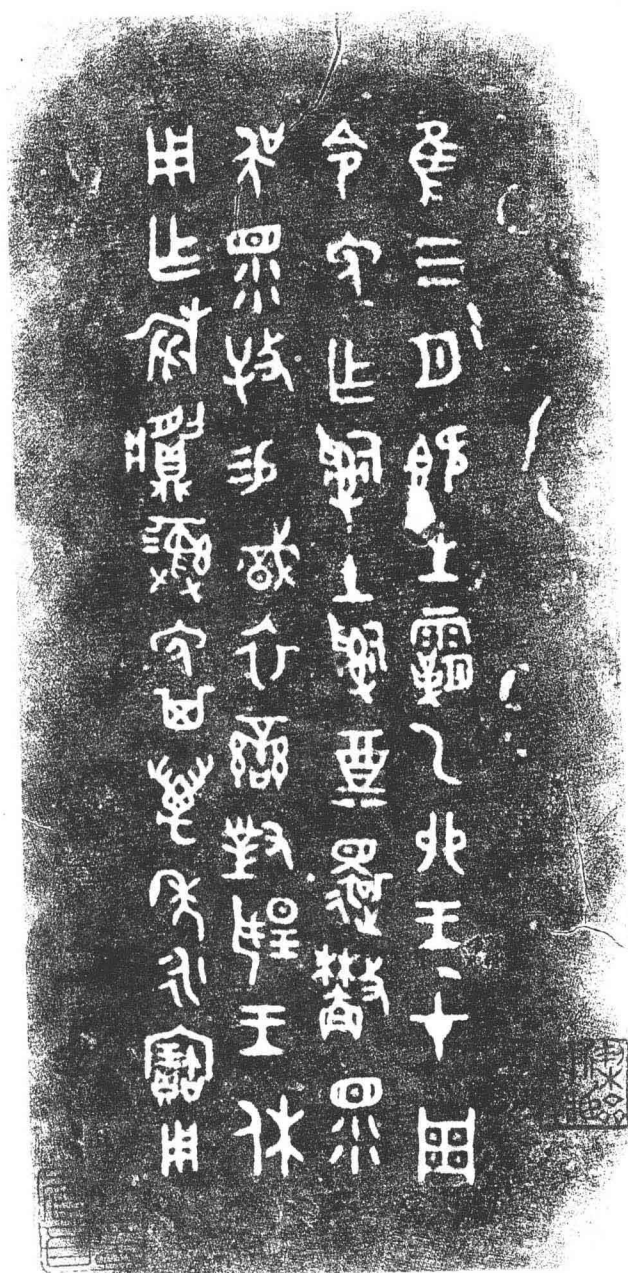 隹三月既生霸乙卯王才周
令免乍𤔲土𤔲奠還眔
吳眔牧易戠衣䜌對揚王休
用乍旅𩰬彝免其萬年永寶用